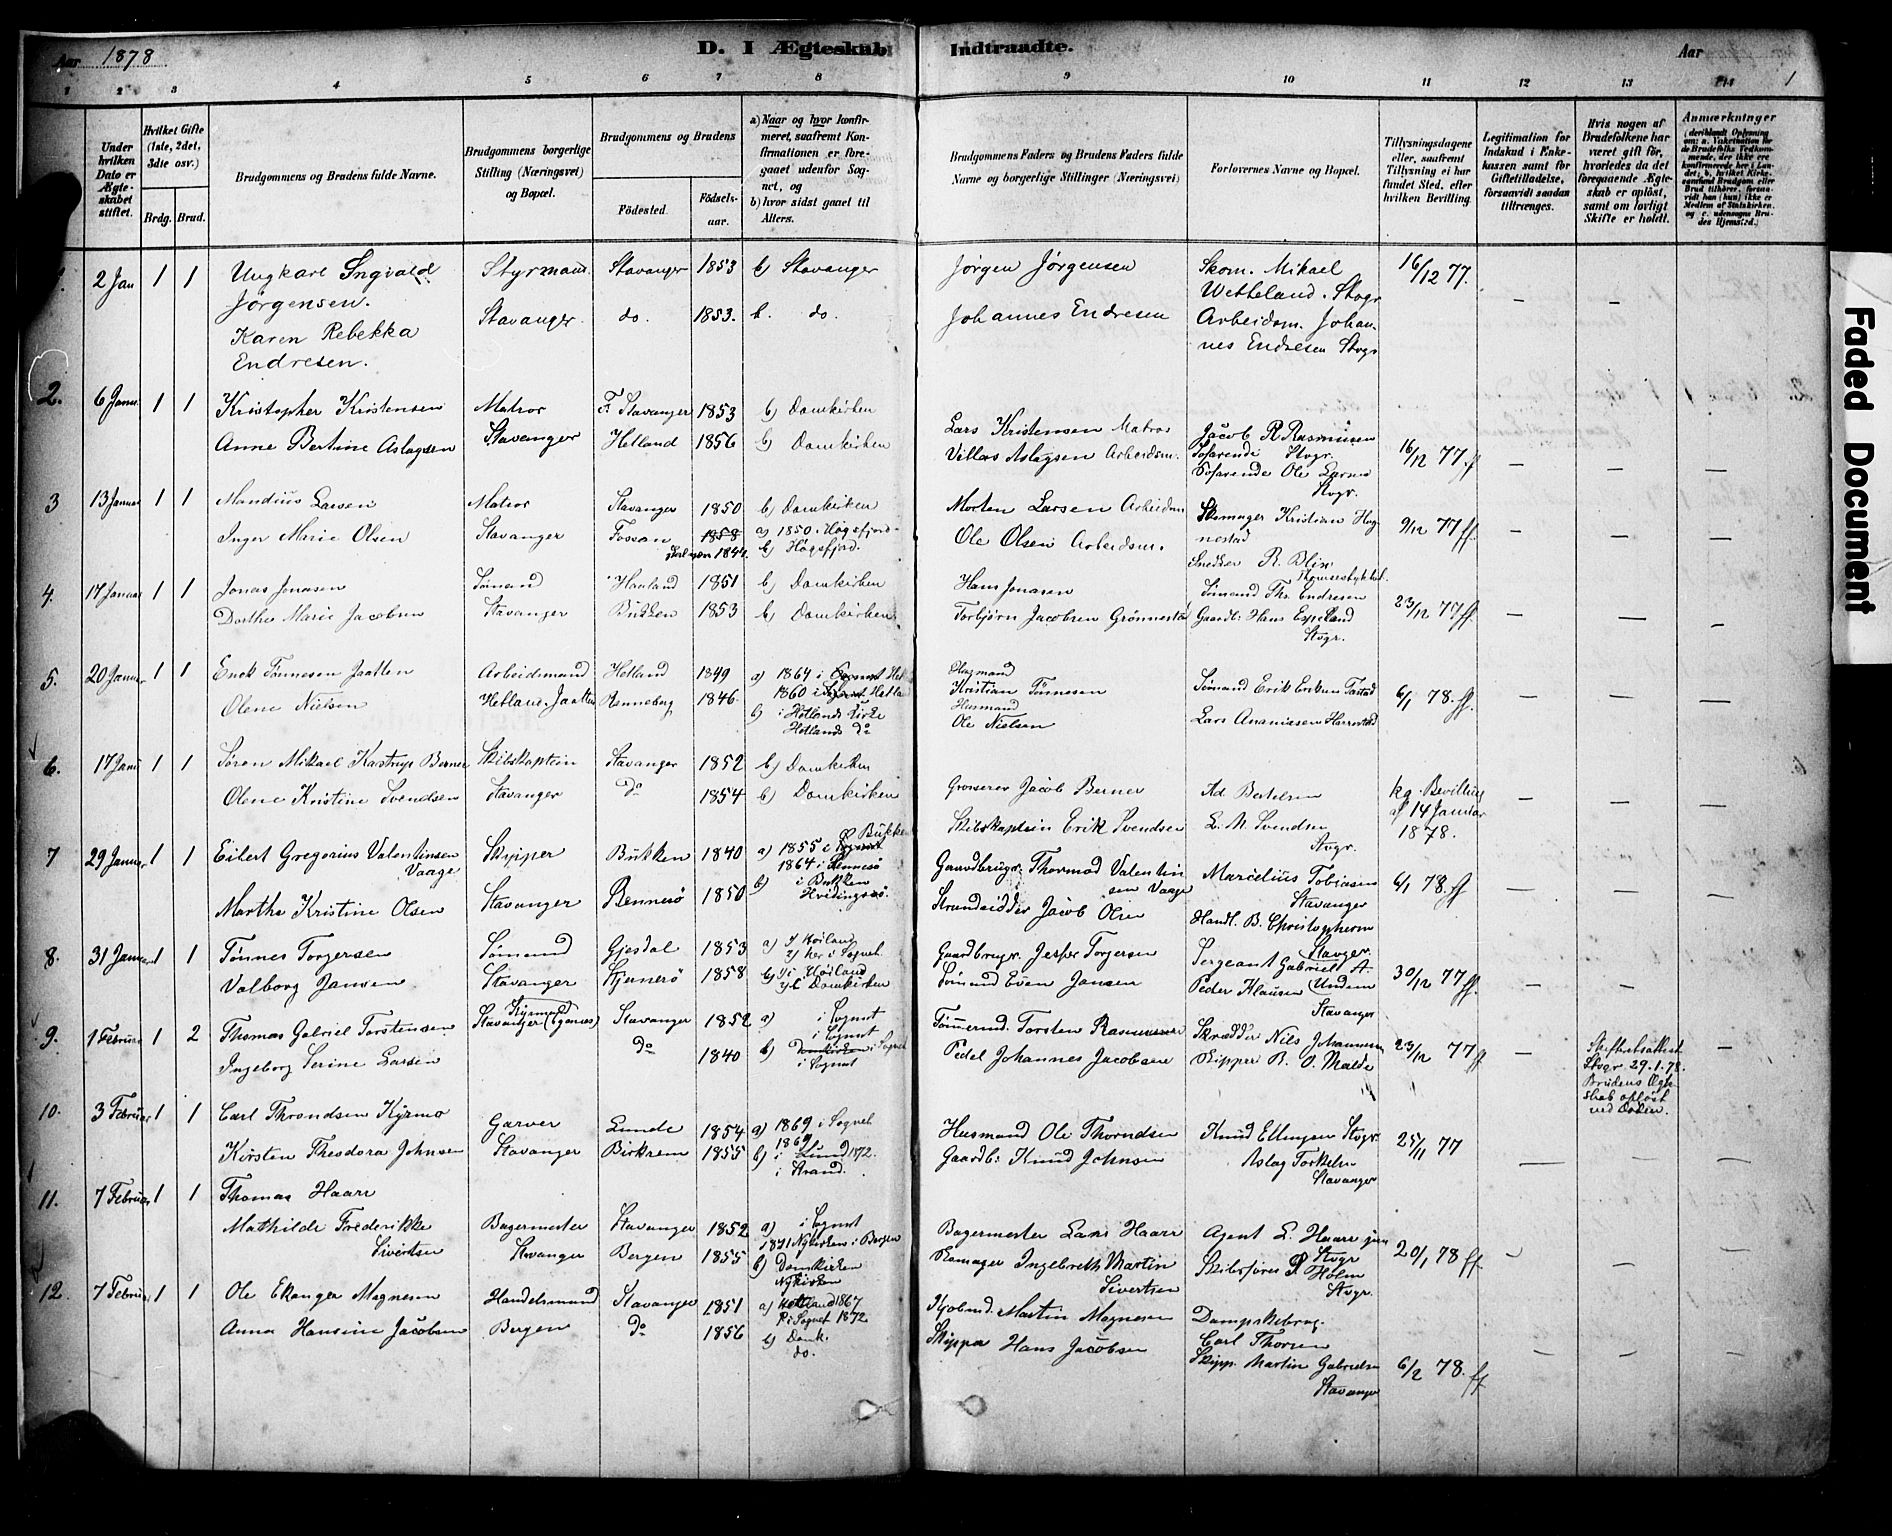 Aar 1878
D. I Ægteskab
Indtraadte.
Aar
1
1 2 3 4 5 6 7 8 9 10 11 12 13 14
Under hvilken Dato er Ægteskabet stiftet.
Hvilket Gifte (1ste, 2det, 3die osv.)
Brdg. Brud.
Brudgommens og Brudens fulde Navne.
Brudgommens borgerlige Stilling (Næringsvei) og Bopæl.
Brudgommens og Brudens
Fødested.
Fødselsaar.
a) Naar og hvor konfirmeret, saafremt Konfirmationen er foregaaet udenfor Sognet, og
b) hvor sidst gaaet til Alters.
Brudgommens Faders og Brudens Faders fulde Navne og borgerlige Stillinger (Næringsvei)
Forlovernes Navne og Bopæl.
Tillysningsdagene eller, saafremt Tillysning ei har fundet Sted, efter hvilken Bevilling.
Legitimation for Indskud i Enkekassen samt for Giftetilladelse, forsaavidt saadan tiltrænges.
Hvis nogen af Brudefolkene har været gift før, hvorledes da det foregaaende Ægteskab er opløst, samt om lovligt Skifte er holdt.
Anmærkninger
2 Jan 1 1 Ungkarl Ingvald Styrmand Stavanger 1853 b) Stavanger Jörgen Jörgensen Skom. Mikael 16/12 77.
Jörgensen. Wetheland. Stvgr
Karen Rebekka Stavanger. do. 1853. b. do. Johannes Endresen Arbeidsm. Johan-
Endresen. nes Endresen Stvgr
2. 6 Janu. 1 1 Kristopher Kristensen Matros Stavanger 1853 b) Domkirken Lars Kristensen Matros Jacob R. Rasmusen 16/12 77. ff
Anne Bertine Aslagsen Stavanger Hetland 1856 b) Domkirken Aslagsen Arbeidsm. Søfarende Stvgr.
Søfarende Ole Larsen
Stvgr.
3 13 Januar 1 1 Mandius Larsen Matros Stavanger 1850 b) Domkirken Morten Larsen Arbeidsm Skomager Kristian Hog- 9/12 77 ff
Inger Marie Olsen Stavanger Fossan 1858 a) 1850 i Høgsfjord Ole Olsen Arbeidsm. nestad
b) Høgsfjord. Snedker R. Blix
4. 17 Januar 1 1 Jonas Jonasen Sømand Haaland 1851 b) Domkirken Hans Jonasen Sømand Ths. Endresen 23/12 77 ff.
Dorthe Marie Jacobsen Stavanger Bukken 1853 b) Domkirken Torbjørn Jacobsen Grønnestad Gaardb. Hans Espeland
Stvgr.
5. 20 Januar 1 1 Enok Tønnesen Jaatten Arbeidsmand Hetland 1849 a) 1864 i Husmand
Olene Nielsen Hetland. Jaatten Renneberg 1846 1860 i Hetland Kristian Tønnesen Sømand Erik Eriksen Tastad 6/1 78. ff.
b) i Hetlands Kirke Husmand
Hetlands do Ole Nielsen Lars Ananiassen Harrestad
6. 17 Janu 1 1 Søren Mikael Kastrup Berner Skibskaptein Stavanger 1852 b) Domkirken Grosserer Jacob Berner Ad. Bertelsen kg. Bevilling
Olene Kristine Svendsen Stavanger do 1854 b) Domkirken Skibskaptein Erik Svendsen L. M. Svendsen af 14 Januar
Stvgr. 1878.
7 29 Januar 1 1 Eilert Gregorius Valentinsen Skipper Bukken 1840 a) 1855 i Bukken Gaardbruger Thormod Valentin Marcelius Tobiasen 6/1 78. ff
Vaage 1864 i Rennesø sen Vaage Stavanger
Marthe Kristine Olsen Stavanger Rennesø 1850 b) i Bukken Strandsidder Jacob Olsen Handl. B. Christophersen
Hvidingsø. Stavger.
8. 31 Januar 1 1 Tønnes Torgersen Sømand Gjesdal 1853 a) i Høiland Gaardbruger Jesper Torgersen Sergeant Gabriel A. 30/12 77 ff.
her i Sognet
Valborg Jansen Stavanger Stjernerø 1858 b) i Høiland Sømand Even Jansen Peder Klausen (Undem
Domkirken Stavanger
9. 1 Februar 1 2 Thomas Gabriel Torstensen Styrmand Stavanger 1852 a) i Sognet Tømmermd. Torsten Rasmussen Skrædder Nils Johannesen 23/12 77 ff Skifteretsattest
Stavanger (Egenæs) i Sognet Stvgr 29.1.78.
Ingeborg Serine Larsen do 1840 b) Domkirken i Sognet Pedel Johannes Jacobsen Skipper R. O. Malde Brudens Ægte-
i Sognet skab opløst
ved Døden.
10. 3 Februar 1 1 Carl Throndsen Kyrmo Garver Lunde 1854 a) 1869 i Sognet Husmand Ole Thorndsen Knud Ellingsen Stvgr. 25/11 77
1869
Kirsten Theodora Johnsen Stavanger Birkrem 1855 b) i Lund 1872. Gaardb: Knud Johnsen Aslag Torkelsen
i Strand. Stavanger
11. 7 Februar 1 1 Thomas Haarr
Mathilde Frederikke Bagermester Stavanger 1852 a) i Sognet Bagermester Lars Haarr Agent L. Haarr jun 20/1 78 ff
1871 Nykirken i Bergen Stvgr
Sivertsen Stavanger Bergen 1855 b) Domkirken Ingebreth Martin Skibsfører P. Holm
Nykirken Sivertsen Stvgr.
12. 7 Februar 1 1 Ole Ekanger Magnesen Handelsmand Stavanger 1851 a) Hetland 1867 Kjøbmd. Martin Magnesen Dampskibsexp.
i Sognet 1872
Anna Hansine Jacobsen Bergen do 1856 b) Domk. Skipper Hans Jacobsen Carl Thorsen
do. Skipp. Martin Gabrielsen 6/2 78. ff
Stavanger
Faded Document